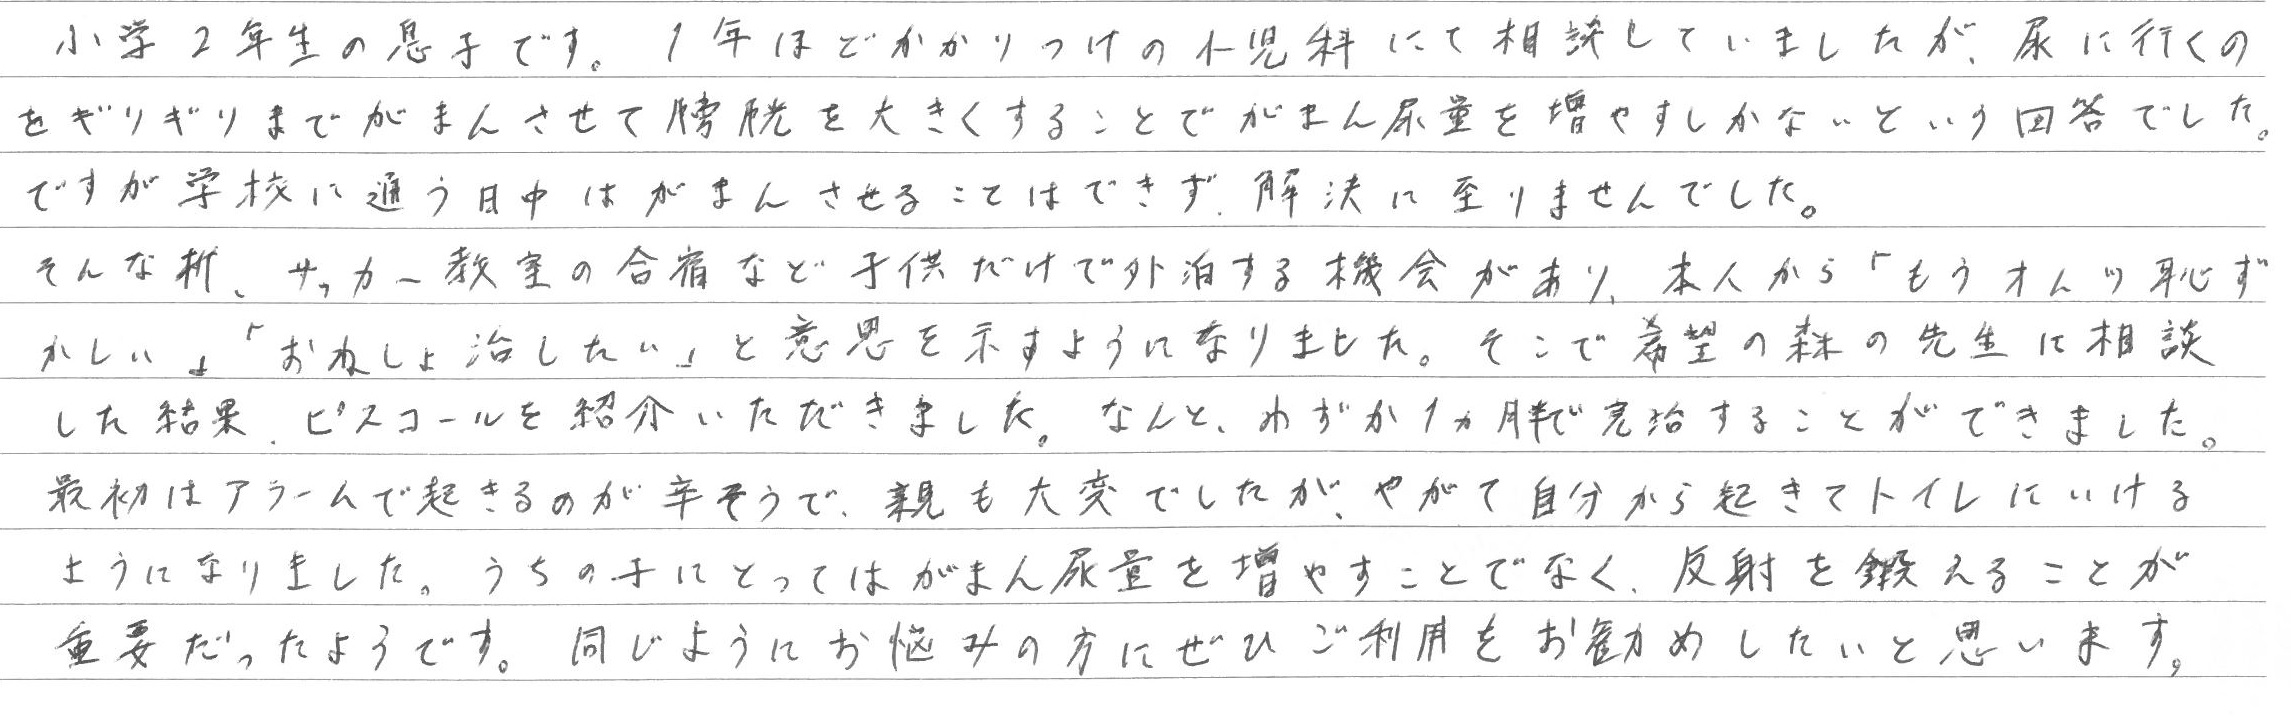 小学2年生の息子です。1年ほどかかりつけの小児科にて相談していましたが、尿に行くの
をギリギリまでがまんさせて膀胱を大きくすることでがまん尿量を増やすしかないという回答でした。
ですが学校に通う日中はがまんさせることはできず、解決に至りませんでした。
そんな折、サッカー教室の合宿など子供だけで外泊する機会があり、本人から「もうオムツ恥ず
かしい」「おねしょ治したい」と意思を示すようになりました。そこで希望の森の先生に相談
した結果、ピスコールを紹介いただきました。なんと、わずか1ヵ月半で完治することができました。
最初はアラームで起きるのが辛そうで、親も大変でしたが、やがて自分から起きてトイレにいける
ようになりました。うちの子にとってはがまん尿量を増やすことでなく、反射を鍛えることが
重要だったようです。同じようにお悩みの方にぜひご利用をお勧めしたいと思います。